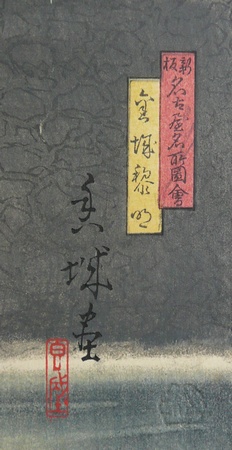 新板
名古屋名所圖會
金城黎明
城画